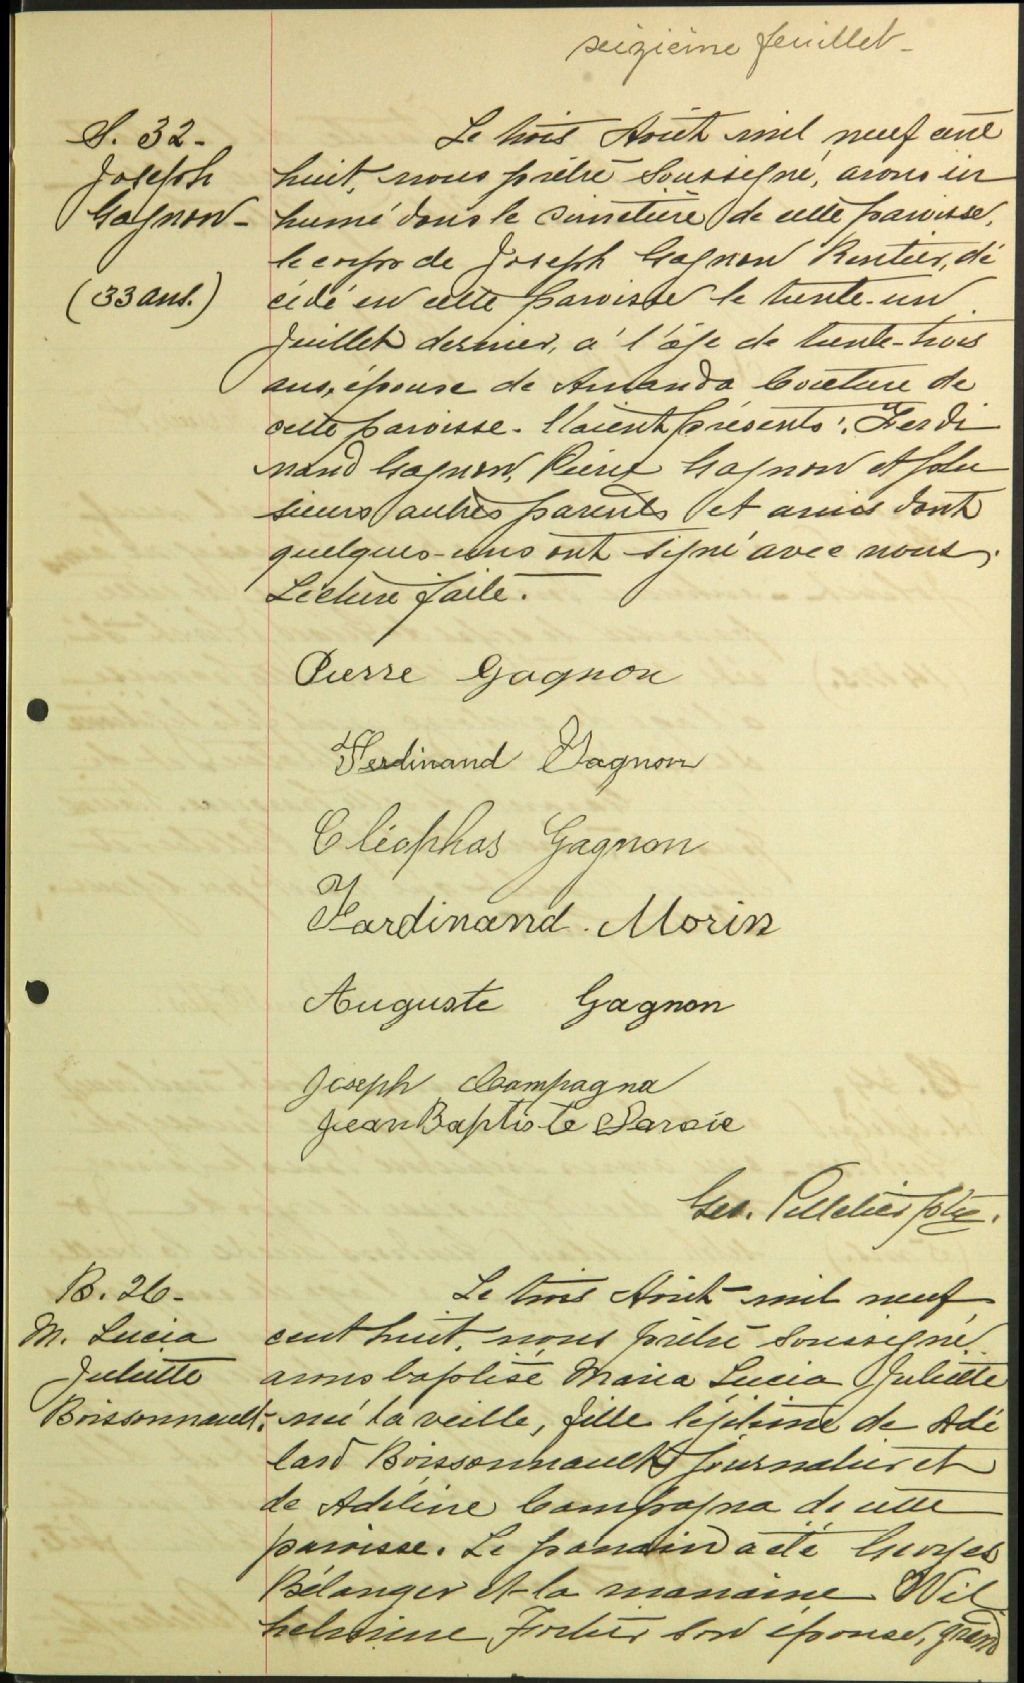 seizième feuillet-
S. 32-
Joseph
Gagnon-
(33 ans.)
Le trois Août mil neuf cent
huit, nous prêtre soussigné, avons in
humé dans le cimetière de cette paroisse,
le corps de Joseph Gagnon Rentier, dé
cédé en cette paroisse le trente-un
Juillet dernier, à l'âge de trente-trois
ans, épouse de Amanda Couture de
cette paroisse. Etaient présents: Ferdi
nand Gagnon, Pierre Gagnon et plu
sieurs autres parents et amis dont
quelques-uns ont signé avec nous,
Lecture faite.
Pierre Gagnon
Ferdinand Gagnon
Cléophas Gagnon
Fardinand. Morin
Auguste Gagnon
Joseph Campagna
Jean Baptiste Savoie
Geo. Pelletier ptre.
B. 26-
M. Lucia
Juliette
Boissonnault.
Le trois Août mil neuf
cent huit, nous prêtre soussigné
avons baptisé Maria Lucia Juliette
née la veille, fille légitime de Adé
lard Boissonnault journalier et
de Adeline Campagna de cette
paroisse. Le parrain a été Georges
Bélanger et la marraine Wil
helmine Fortier son épouse, grand